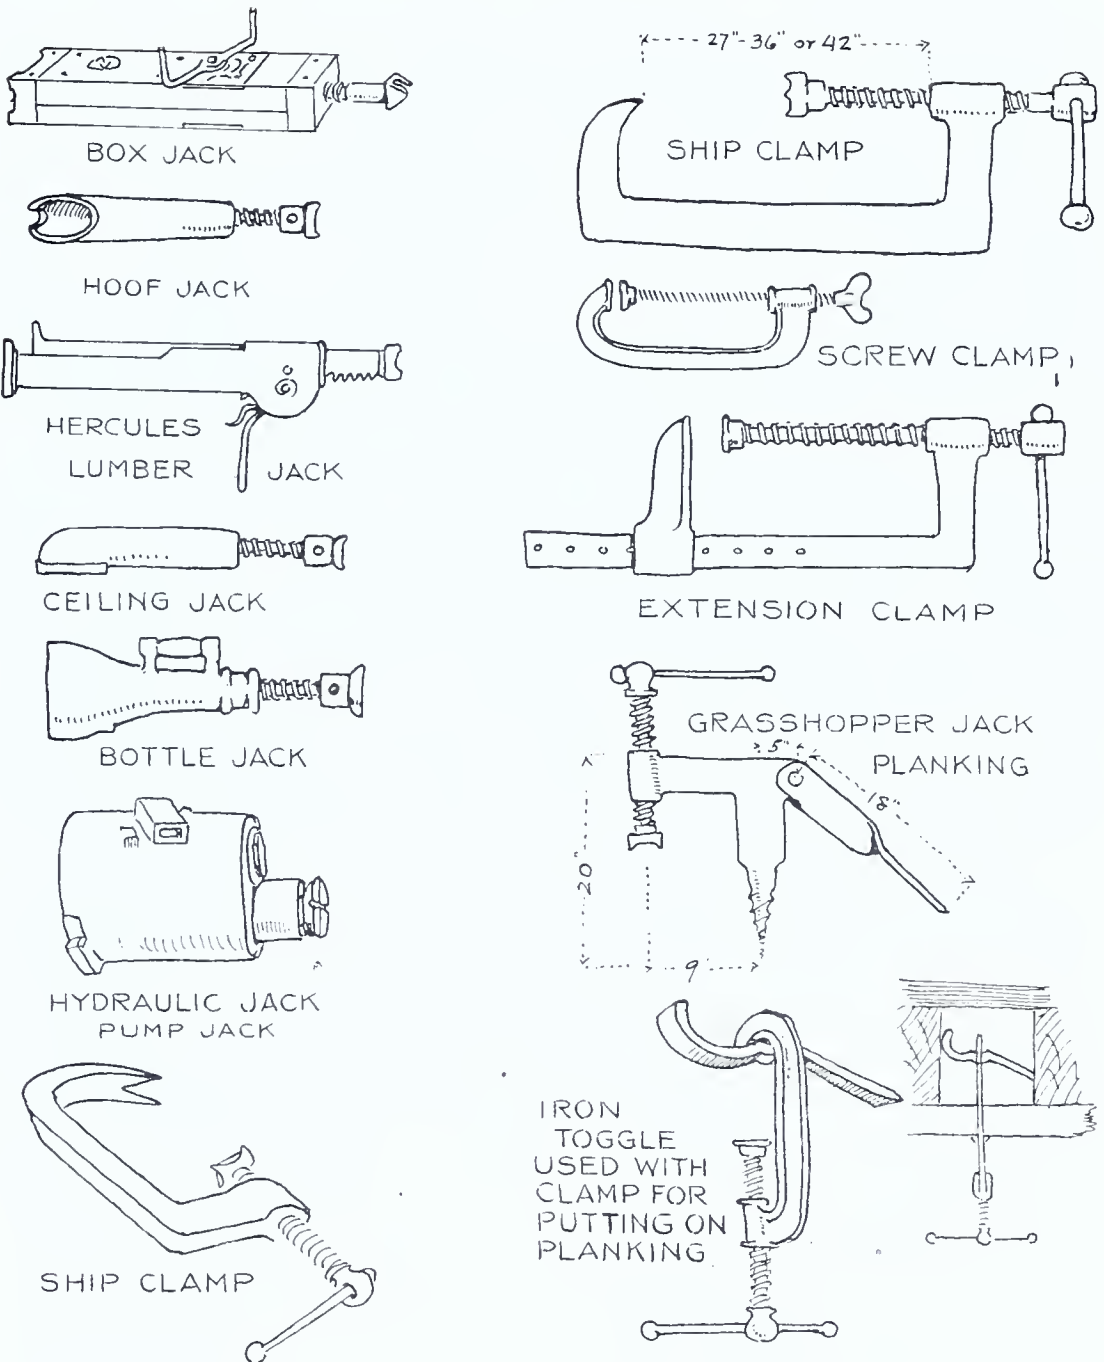 BOX JACK
HOOF JACK
HERCULES
LUMBER JACK
CEILING JACK
BOTTLE JACK
HYDRAULIC JACK
PUMP JACK
SHIP CLAMP
27"-36" or 42"
SHIP CLAMP
SCREW CLAMP
EXTENSION CLAMP
GRASSHOPPER JACK
PLANKING
5"
18"
20"
9
IRON
TOGGLE
USED WITH
CLAMP FOR
PUTTING ON
PLANKING